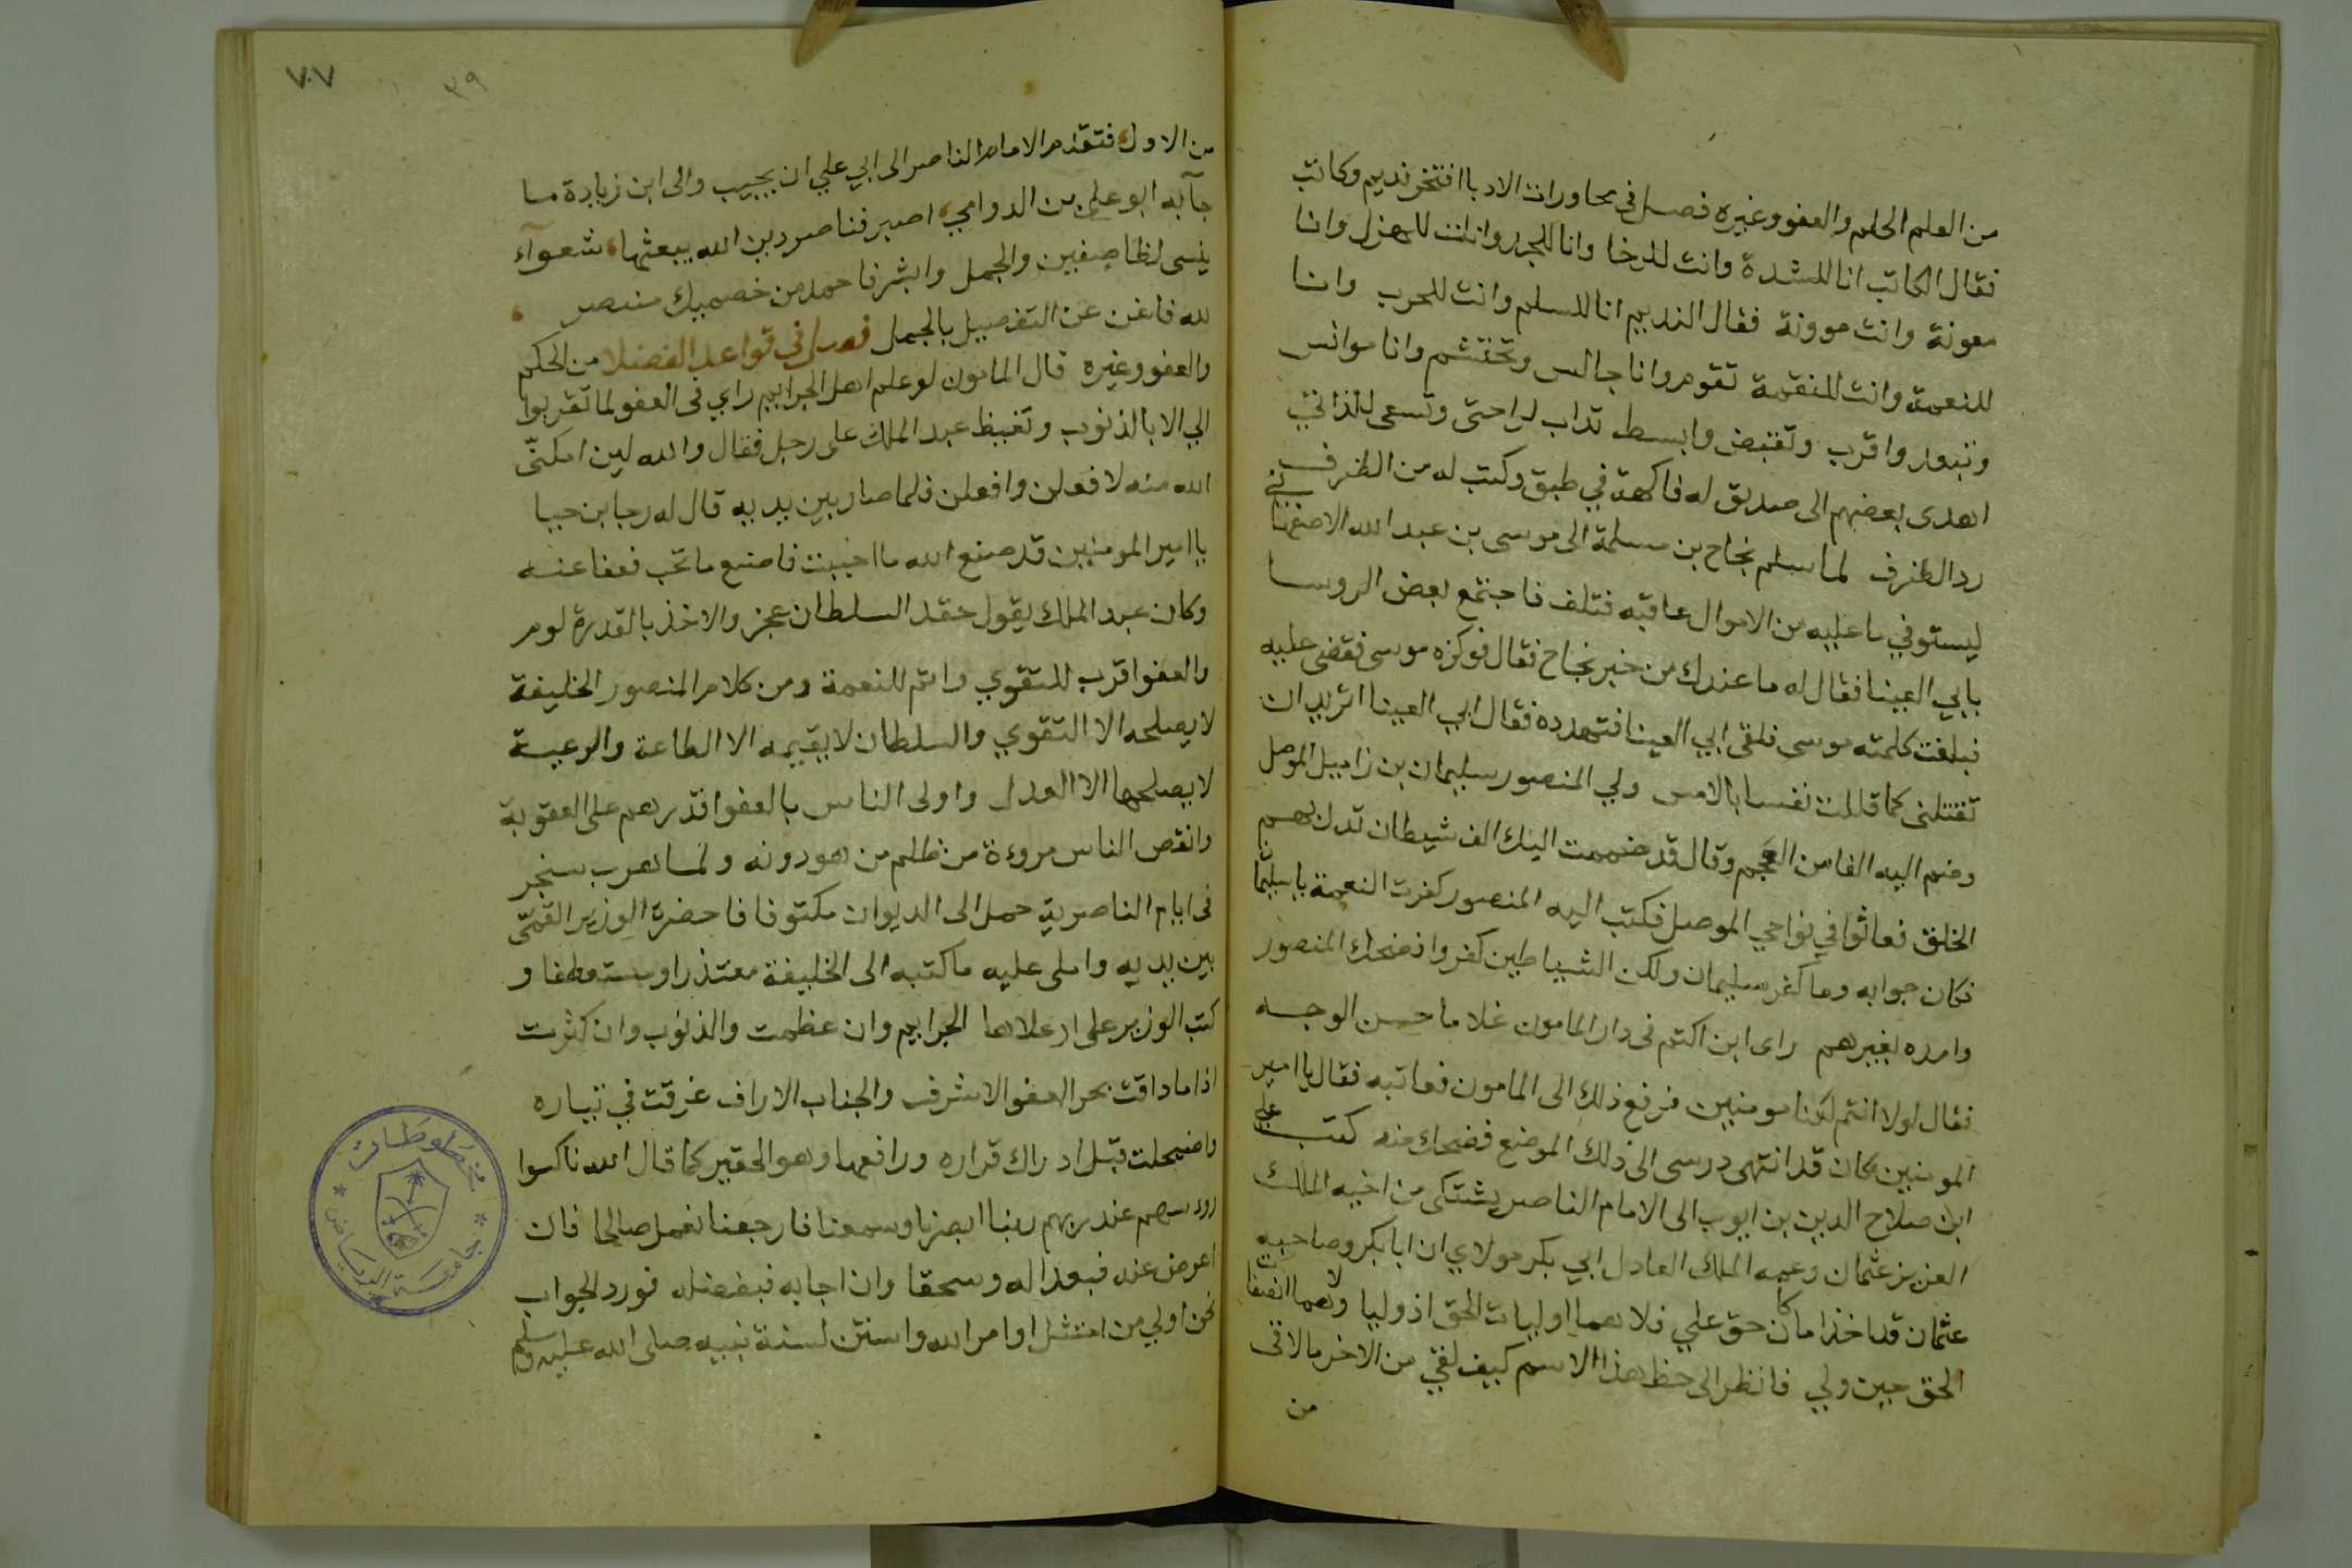 من العلم الحلم والعفو وغيره فصل في محاورات الادبا افتخر نديم وكاتب
فقال الكاتب انا للشدة وانت للرخا وانا للجد وانت للهزل وانا
معونة وانت موونة فقال النديم انا للسلم وانت للحرب وانا
للنعمة وانت للنقمة تقوم وانا جالس وتحتشم وانا موانس
وتبعد واقرب وتقبض وابسط تداب لراحتى وتسعى للذاتي
اهدى بعضهم الى صديق له فاكهة في طبق وكتب له من الظرف
رد الظرف لما سلم نجاح بن مسلمة الى موسى بن عبد الله الاصفها
ني
ليستوفي ما عليه من الاموال عاقبه فتلف فاجتمع بعض الروسا
بابي العينا فقال له ما عندك من خبر نجاح فقال فوكزه موسى فقضى عليه
فبلغت كلمته موسى فلقى ابي العينا فتهدده فقال ابي العينا اتريد ان
تقتلنى كما قتلت نفسا بالامس ولي المنصور سليمان بن زاميل الموصل
وضم اليه الفا من العجم وقال قد ضممت اليك الف شيطان تدل بهم
الخلق فعاثوا في نواحي الموصل فكتب اليه المنصور كفرت النعمة ياسليما
فكان جوابه وما كفر سليمان ولكن الشياطين كفروا فضحك المنصور
وامده بغيرهم راى ابن اكتم فى دار المامون غلاما حسن الوجه
فقال لولا انتم لكنا مومنين فرفع ذلك الى المامون فعاتبه فقال يا امير
المومنين كان قد انتهى درسى الى ذلك الموضع فضحك منه كتب على
ابن صلاح الدين بن ايوب الى الامام الناصر يشتكى من اخيه الملك
العزيز عثمان وعمه الملك العادل ابي بكر مولاي ان ابا بكر وصاحبه
عثمان قد اخذا ما كان حق علي فلا هما اوليات الحق اذ وليا ولا هما انصفا
الحق حين ولي فانظر الى حظ هذا الاسم كيف لقي من الاخر ما لاقى
من
٧٠٧
٣٩
من الاول فتقدم الامام الناصر الى ابي علي ان يجيب والى ابن زيادة ما
جآ به ابو علي بن الدوامي اصبر فناصر دين الله يبعثها شعوآء
ينسى لظا صفين والجمل وابشر فاحمد من خصميك منتصر
لله فاغن عن التفصيل بالجمل فصل في قواعد الفضلا من الحكم
والعفو وغيره قال المامون لو علم اهل الجرايم راي فى العفو لما تقربوا
الي الا بالذنوب وتغيظ عبد الملك على رجل فقال والله لين امكننّى
الله منه لافعلن وافعلن فلما صار بين يديه قال له رجا بن حيا
يا امير المومنين قد صنع الله ما احببت فاصنع ما تحب فعفا عنه
وكان عبد الملك يقول حقد السلطان عجز والاخذ بالقدرة لوم
والعفو اقرب للتقوي واتم للنعمة ومن كلام المنصور الخليفة
لا يصلحه الا التقوي والسلطان لا يقيمه الا الطاعة والرعية
لا يصلحها الا العدل واولى الناس بالعفو اقدرهم على العقوبة
وانقص الناس مروءة من ظلم من هو دونه ولما هرب سنجر
فى ايام الناصرية حمل الى الديوان مكتوفا فاحضرة الوزير القمّى
بين يديه واملى عليه ما كتبه الى الخليفة معتذرا ومستعطفا و
كتب الوزير على اعلاها الجرايم وان عظمت والذنوب وان كثرت
اذا ما داقت بحر العفو الاشرف والجناب الاراف غرقت في تياره
واضمحلت قبل ادراك قراره ورافعها وهو الحقير كما قال الله ناكسوا
روسهم عند ربهم ربنا ابصرنا وسمعنا فارجعنا نعمل صالحا فان
اعرض عنه فبعدا له وسحقا وان اجابه فبفضله فورد الجواب
نحن اولي من امتثل اوامر الله واستن لسنة نبيه صلى الله عليه وسلم
مخطوطات
جامعة الرياض